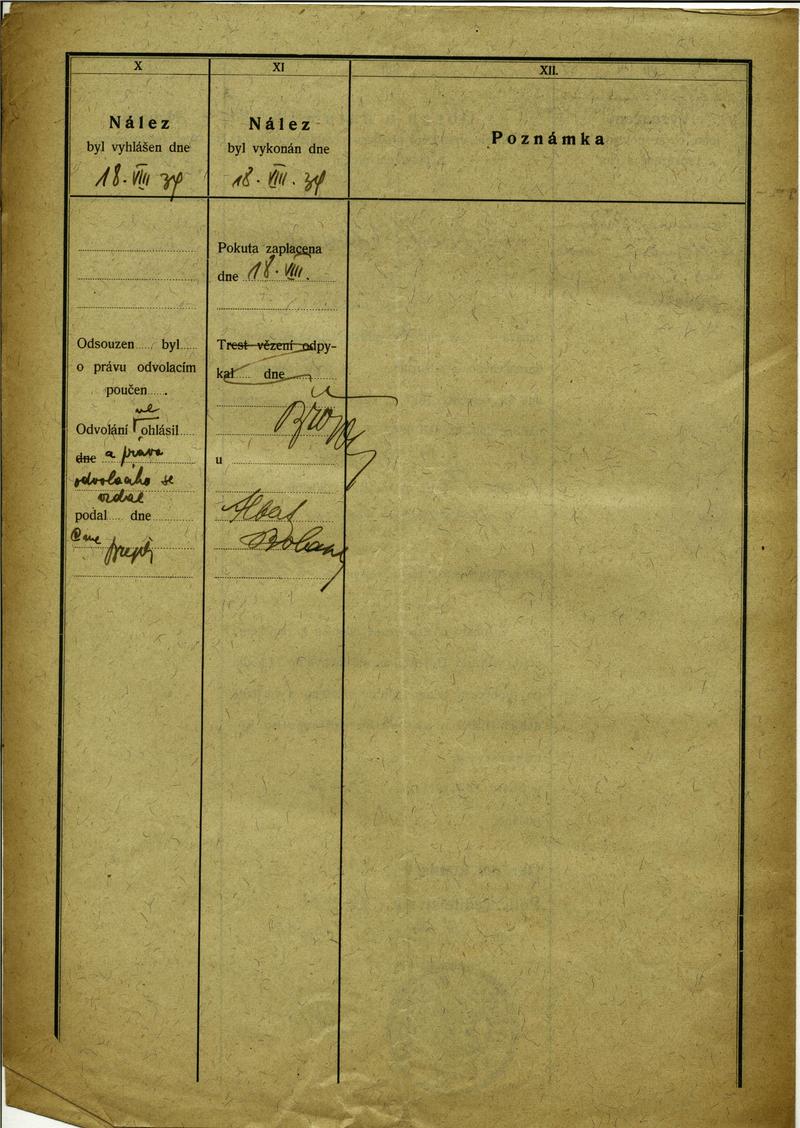 X
Nález
byl vyhlášen dne
18. VIII 34
Odsouzen..... byl.....
o právu odvolacím
poučen......
ne
Odvolání ohlásil....
dne a práva
odvolacího se
vzdal
podal.... dne
XI
Nález
byl vykonán dne
18. VIII. 34
Pokuta zaplacena
dne 18. VIII.
Trest vězení odpy-
kal.... dne
u
XII.
Poznámka